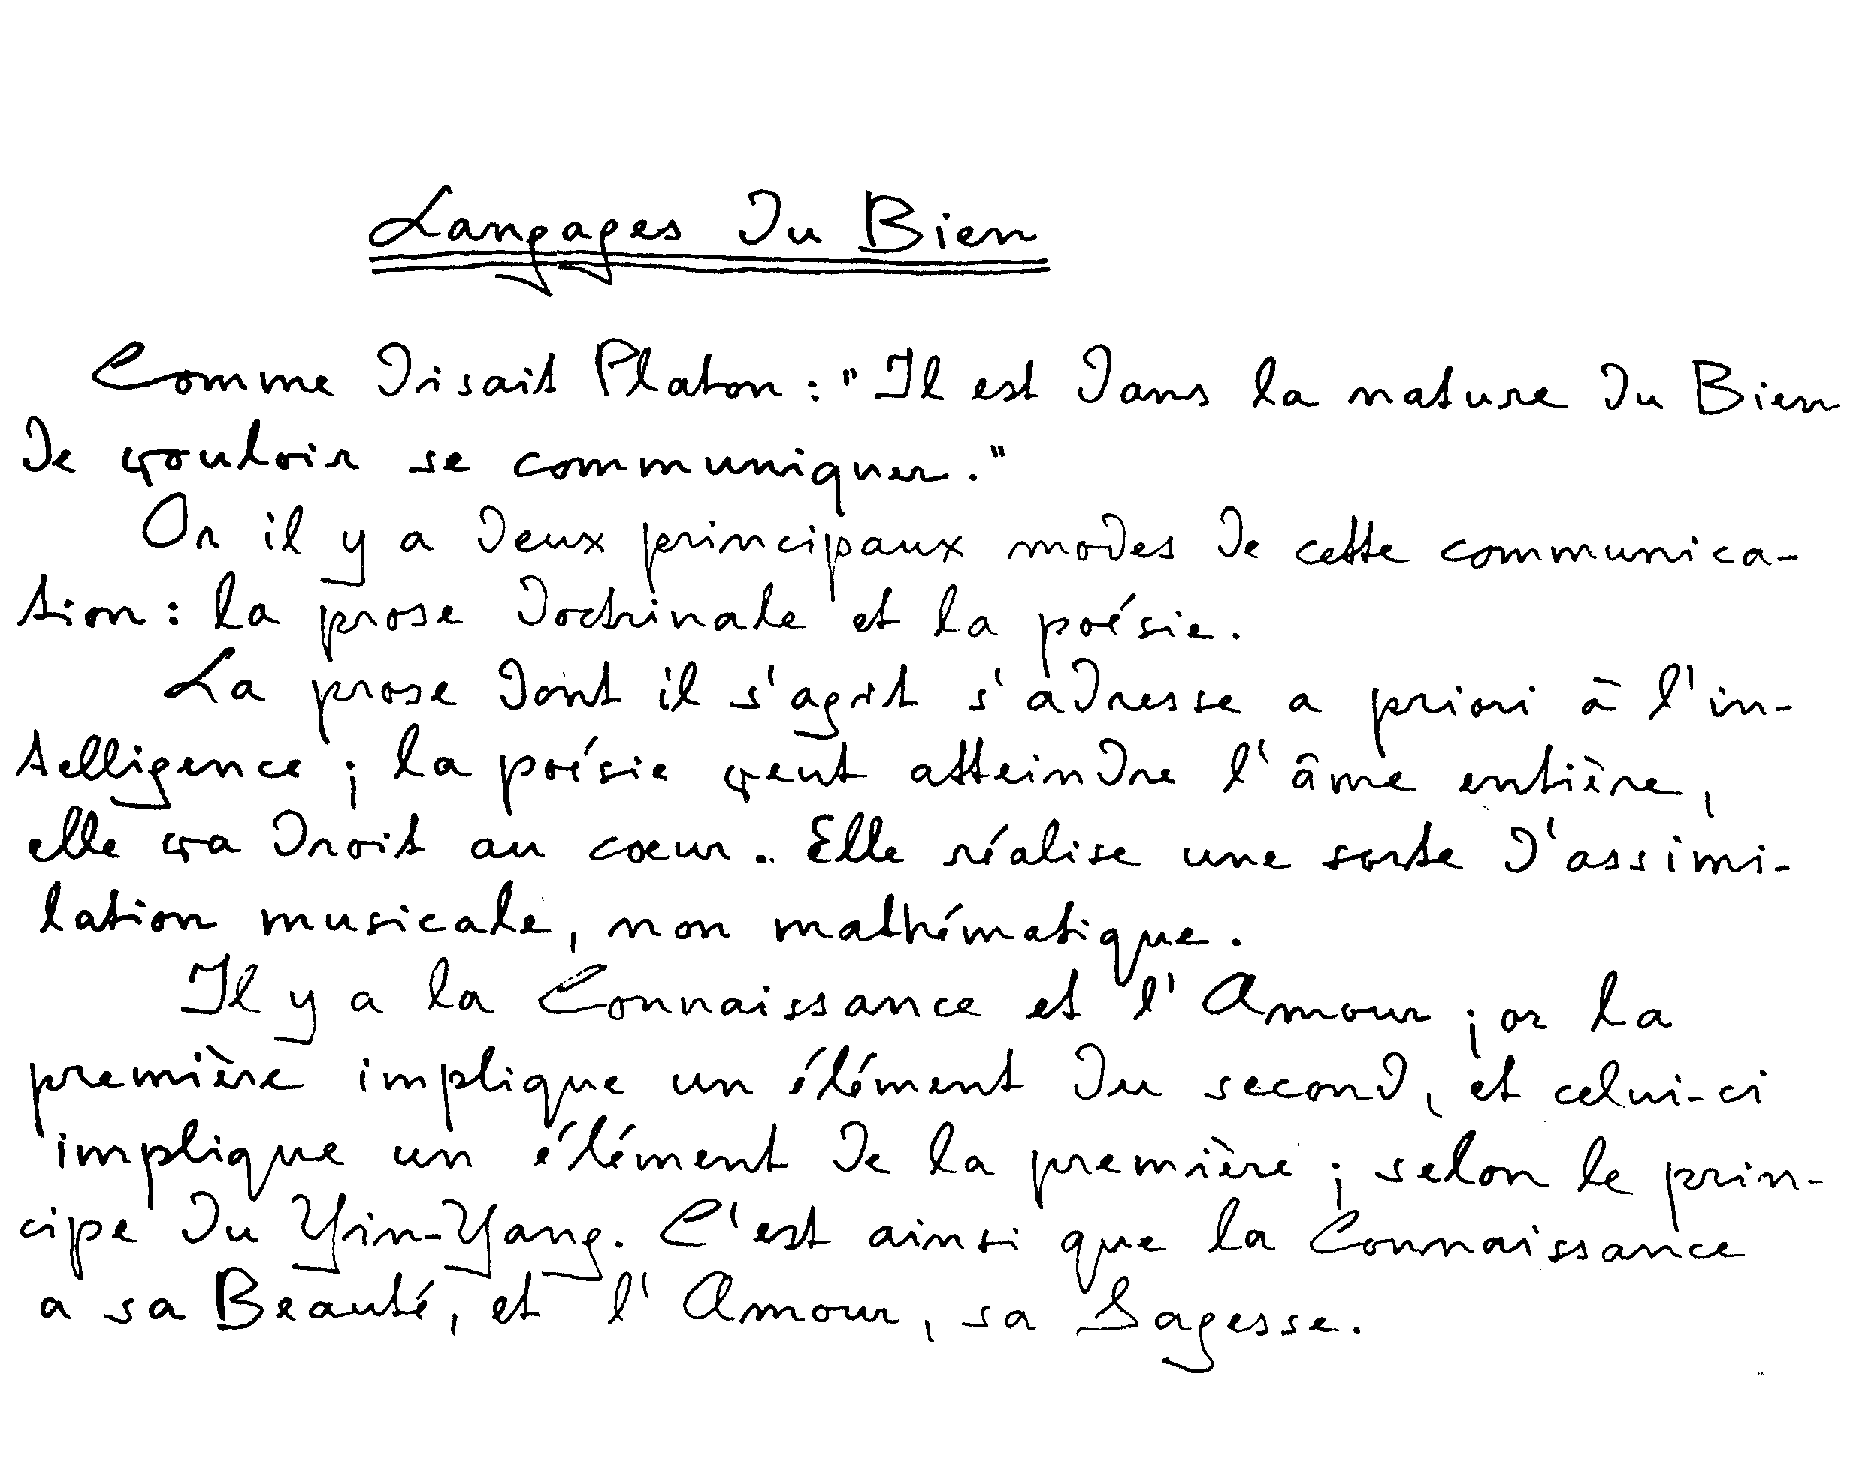 Langages du Bien
Comme disait Platon : "Il est dans la nature du Bien
de vouloir se communiquer."
Or il y a deux principaux modes de cette communica-
tion : la prose doctrinale et la poésie.
La prose dont il s'agit s'adresse a priori à l'in-
telligence ; la poésie veut atteindre l'âme entière,
elle va droit au cœur. Elle réalise une sorte d'assimi-
lation musicale, non mathématique.
Il y a la Connaissance et l'Amour ; or la
première implique un élément du second, et celui-ci
implique un élément de la première ; selon le prin-
cipe du Yin-Yang. C'est ainsi que la Connaissance
a sa Beauté, et l'Amour, sa Sagesse.